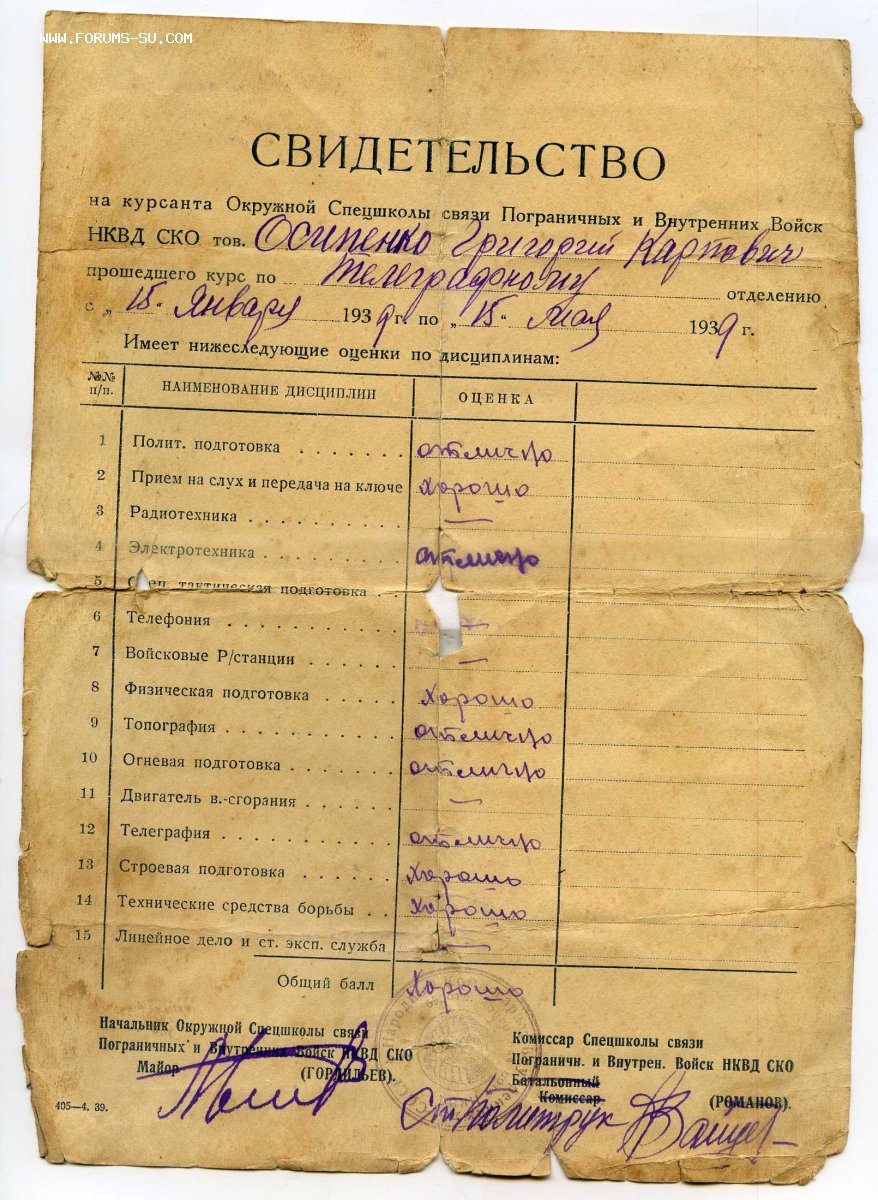 WWW.FORUMS-SU.COM
СВИДЕТЕЛЬСТВО
на курсанта Окружной Спецшколы связи Пограничных и Внутренних Войск
НКВД СКО тов. Осипенко Григорий Карпович
прошедшего курс по Телеграфному отделению
с „ 15 “ Января 1939 г. по „ 15 “ мая 1939 г.
Имеет нижеследующие оценки по дисциплинам:
№№ п/п. НАИМЕНОВАНИЕ ДИСЦИПЛИН ОЦЕНКА
1 Полит. подготовка . . . . . . . отлично
2 Прием на слух и передача на ключе хорошо
3 Радиотехника . . . . . . . . . . —
4 Электротехника . . . . . . . . . отлично
5 Спец. тактическая подготовка .
6 Телефония . . . . . . . . . . . —
7 Войсковые Р/станции . . . . . . —
8 Физическая подготовка . . . . . хорошо
9 Топография . . . . . . . . . . . отлично
10 Огневая подготовка . . . . . . . отлично
11 Двигатель в.-сгорания . . . . . . —
12 Телеграфия . . . . . . . . . . . отлично
13 Строевая подготовка . . . . . . хорошо
14 Технические средства борьбы . . хорошо
15 Линейное дело и ст. эксп. служба —
Общий балл хорошо
Начальник Окружной Спецшколы связи
Пограничных и Внутренних Войск НКВД СКО
Майор (ГОРДИЛЬЕВ).
Комиссар Спецшколы связи
Пограничн. и Внутрен. Войск НКВД СКО
Батальонный
Комиссар (РОМАНОВ).
Ст. Политрук
405—4. 39.